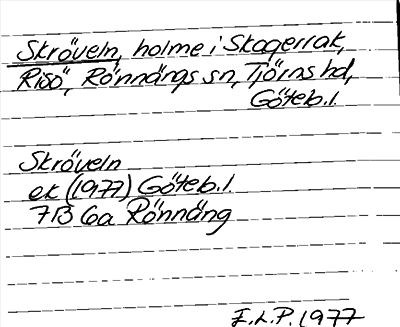 Skröveln, holme i Skagerrak,
Risö, Rönnängs sn, Tjörns hd,
Göteb.l.
Skröveln
ek (1977) Göteb.l.
7B 6a Rönnäng
E.L.P. 1977